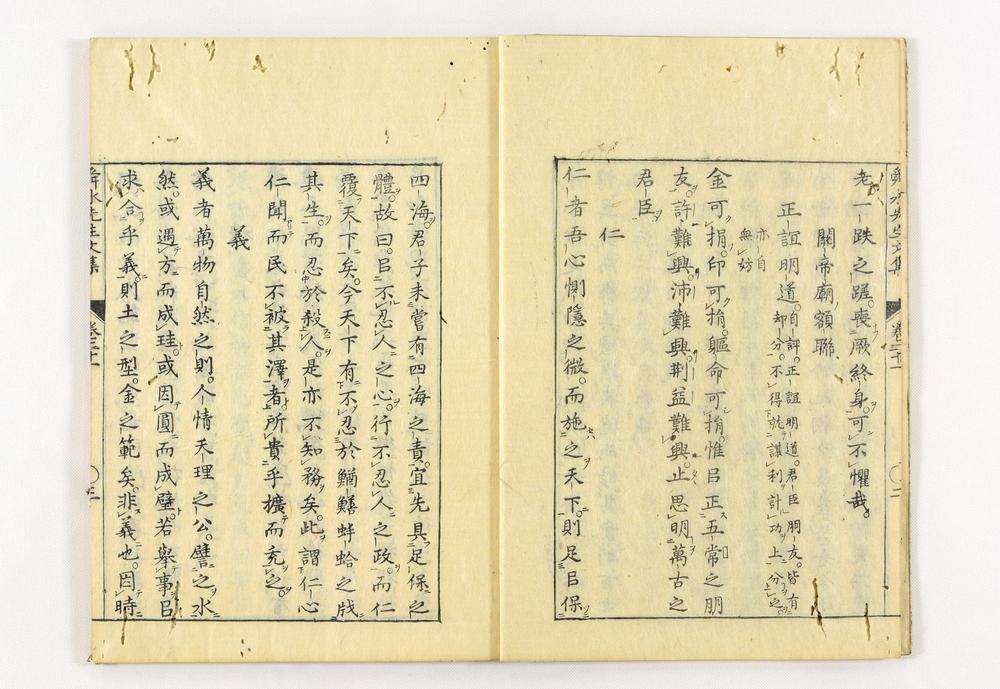 舜水先生文集 卷二十一 〇二
老一跌之蹉。喪厥終身。可不懼哉。
關帝廟額聯
正誼明道。自評。正誼明道。君臣朋友。皆有
却分。不得就謀利計功上分之。
亦自
無妨
金可捐。印可捐。軀命可捐。惟㠯正五常之朋
友。許難興。沛難興。荆益難興。止思明萬古之
君臣。
仁
仁者吾心惻隱之微。而施之天下。則足㠯保
四海。君子未嘗有四海之責。宜先具足保之
體。故曰。㠯不忍人之心。行不忍人之政。而仁
覆天下矣。今天下有不忍於鰌鱔蚌蛤之戕
其生。而忍於殺人。是亦不知務矣。此謂仁心
仁聞而民不被其澤者。所貴乎擴而充之。
義
義者萬物自然之則。人情天理之公。譬之水
然。或遇方而成珪。或因圓而成璧。若舉事㠯
求合乎義。則土之型。金之範矣。非義也。因時
舜水先生文集 卷二十一 〇三